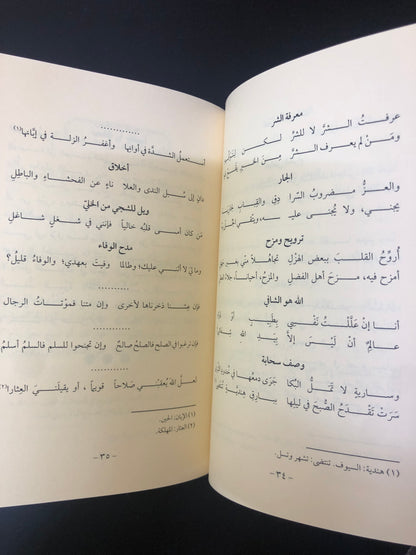 معرفة الشر
عرفتُ الشرَّ لا للشرِّ لكن
ومَنْ لم يعرف الشرَّ مِنَ الخيرِ
الجار
والعزُّ مضروبُ السرا دقِ والقبابِ
يجني، ولا يُجنى عليه،
ترويح ومزح
أُروِّحُ القلبَ ببعض الهزْلِ تجاهُلاً
أمزح فيه، مزحَ أهل الفضل والمزحُ، أحياناً، جلاءُ
الله هو الشافي
أنا إنْ عَلَّلْتُ نفسي بطبيبٍ أوْ
عالمٌ أنْ ليسَ إلاّ بيدِ الله
وصف سحابة
وساريةٍ لا تَمَلُّ البكا جَرَى دمعُها في خدودِ
سرَتْ تقدَحُ الصُّبحَ في ليلِها ببارقِ هنديةٍ
(١) هندية: السيوف. تنتضى: تشهر وتسل.
- ٣٤ -
............
أستعملُ الشدَّةَ في أوانِها وأغفرُ الزلةَ في إبَّانِها(١)
أخلاق
دانٍ إلى سُبلِ الندى والعلا ناءٍ عن الفحشاءِ والباطلِ
ويل للشجي من الخليّ
مَن كان أمسى قلبُه خالياً فإنني في شُغلٍ شاغلِ
مدح الوفاء
وما لي لا أُثني عليك؛ وطالما وفيتَ بعهدي؛ والوفاءُ قليلُ؟
............
فإن عشنا ذخرناها لأخرى وإن متنا فموْتاتُ الرجال
............
فإن ترغبوا في الصلح فالصلح صالحٌ وإن تجنحوا للسلم فالسلمُ أسلمُ
............
لعلَّ اللهَ يُعقبُني صلاحاً قويماً، أو يقيلَني العِثار(٢)
(١) الإبان: الحين.
(٢) العثار: المهلكة.
- ٣٥ -